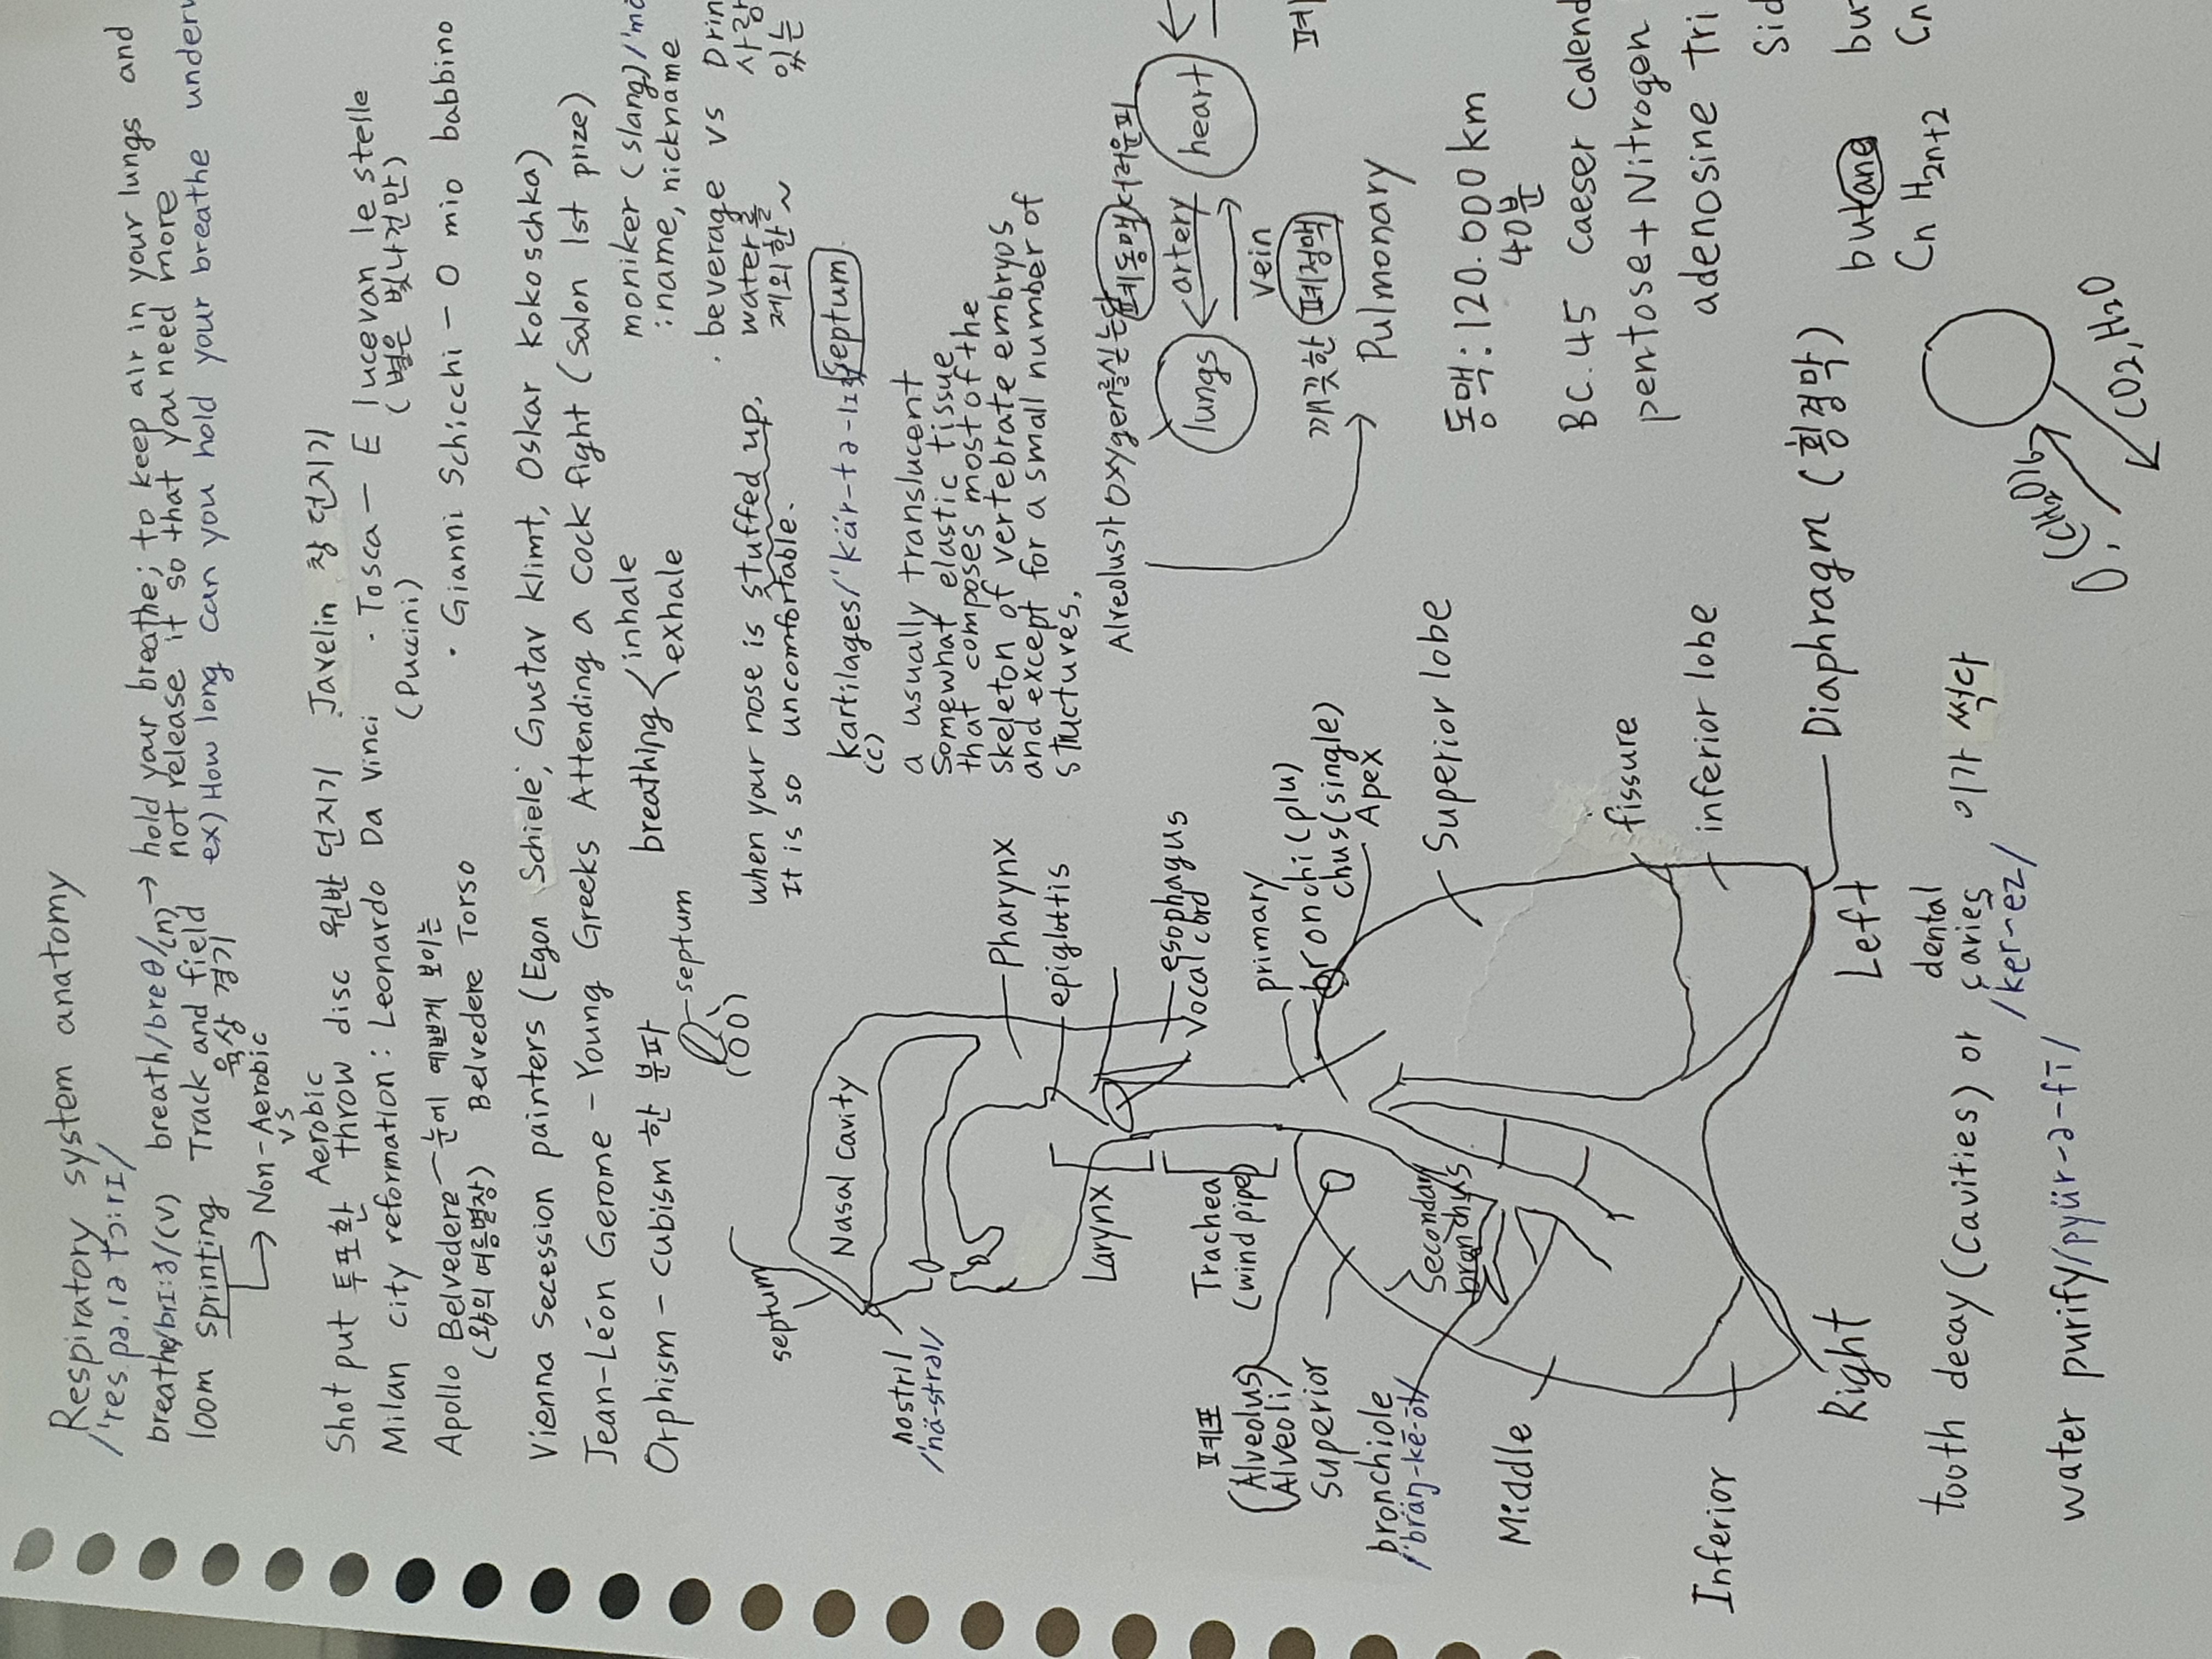 Respiratory system anatomy
/'res.pə.rə tɔ:rI/
breathe/bri:ð/(v) breath/breθ/(n) → hold your breathe; to keep air in your lungs and
not release it so that you need more
100m sprinting Track and field ex) How long can you hold your breathe underw
육상 경기
↳ Non-Aerobic
vs
Aerobic
Shot put 투포환 throw disc 원반 던지기 Javelin 창 던지기
Milan city reformation: Leonardo Da Vinci · Tosca — E lucevan le stelle
(Puccini) (별은 빛나건만)
Apollo Belvedere — 눈에 예쁘게 보이는
· Gianni Schicchi — O mio babbino
(왕의 여름별장) Belvedere Torso
Vienna Secession painters (Egon Schiele; Gustav Klimt, Oskar Kokoschka)
Jean-Léon Gerome - Young Greeks Attending a cock fight (Salon 1st prize)
Orphism - cubism 한 분파
breathing < inhale
exhale
moniker (slang) /'mä
: name, nickname
septum
· beverage vs Drin
water를
제외한~
사랑
있는
when your nose is stuffed up,
It is so uncomfortable.
septum
Nasal cavity
nostril
/'nä-strəl/
Pharynx
epiglottis
esophagus
vocal cord
Larynx
Trachea
(wind pipe)
Kartilages/'kär-tə-lɪ
(c)
Septum
a usually translucent
somewhat elastic tissue
that composes most of the
skeleton of vertebrate embryos
and except for a small number of
structures.
Alveolus가 oxygen를 싣는다
폐동맥 더러운피
lungs ← artery heart
→
vein
폐정맥
깨끗한
Pulmonary
primary
bronchi (plu)
chus (single)
Apex
폐포
(Alveolus)
Alveoli
Superior
Secondary
bronchus
bronchiole
/'bräŋ-kē-ōl/
Middle
Inferior
Right
Left
Superior lobe
fissure
inferior lobe
Diaphragm (횡격막)
동맥: 120.000km
40분
BC.45 Caeser Calend
pentose + Nitrogen
adenosine tri
Sid
butane bu
CnH2n+2 Cn
CO2, H2O
tooth decay (cavities) or dental
caries 이가 썩다
/ker-ez/
water purify/pyür-ə-fī/